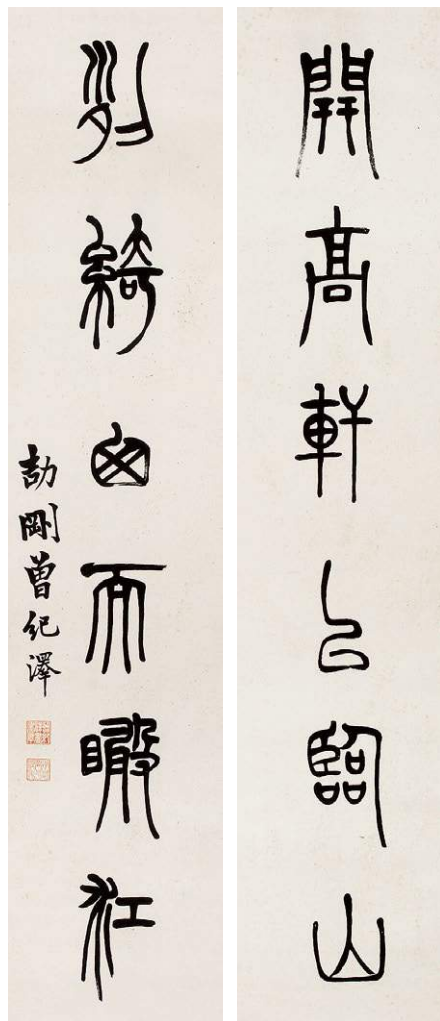 開高軒以臨山
列綺囪而瞰江
劼剛曾紀澤